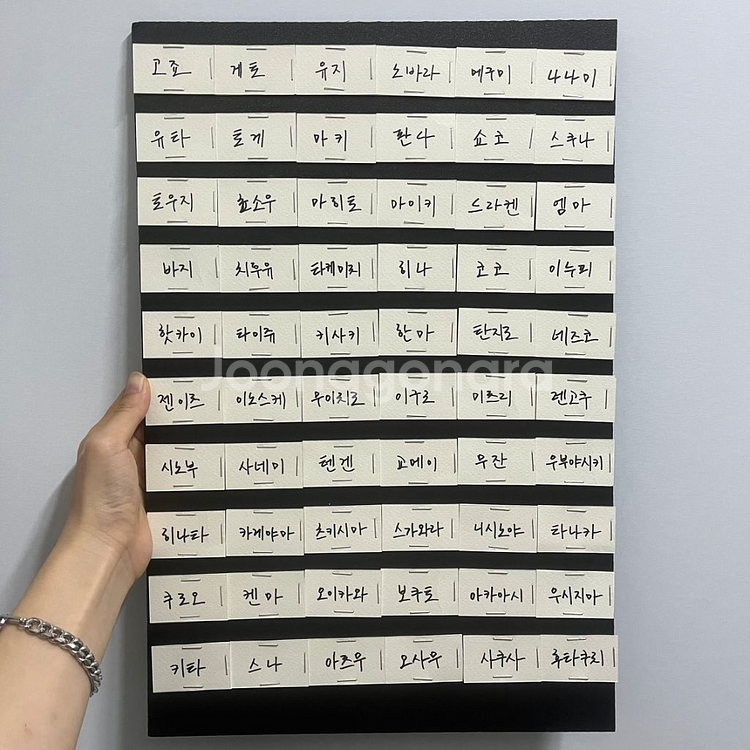 고죠 게토 유지 노바라 메구미 나나미
유타 토게 마키 판다 쇼코 스쿠나
토우지 쵸소우 마히토 마이키 드라켄 엠마
바지 치후유 타케미치 히나 코코 이누피
핫카이 타이쥬 키사키 한마 탄지로 네즈코
젠이츠 이노스케 무이치로 이구로 미츠리 렌고쿠
시노부 사네미 텐겐 교메이 무잔 우부야시키
히나타 카게야마 츠키시마 스가와라 니시노야 타나카
쿠로오 켄마 오이카와 보쿠토 아카아시 우시지마
키타 스나 아츠무 오사무 사쿠사 후타쿠치
Joonggonara